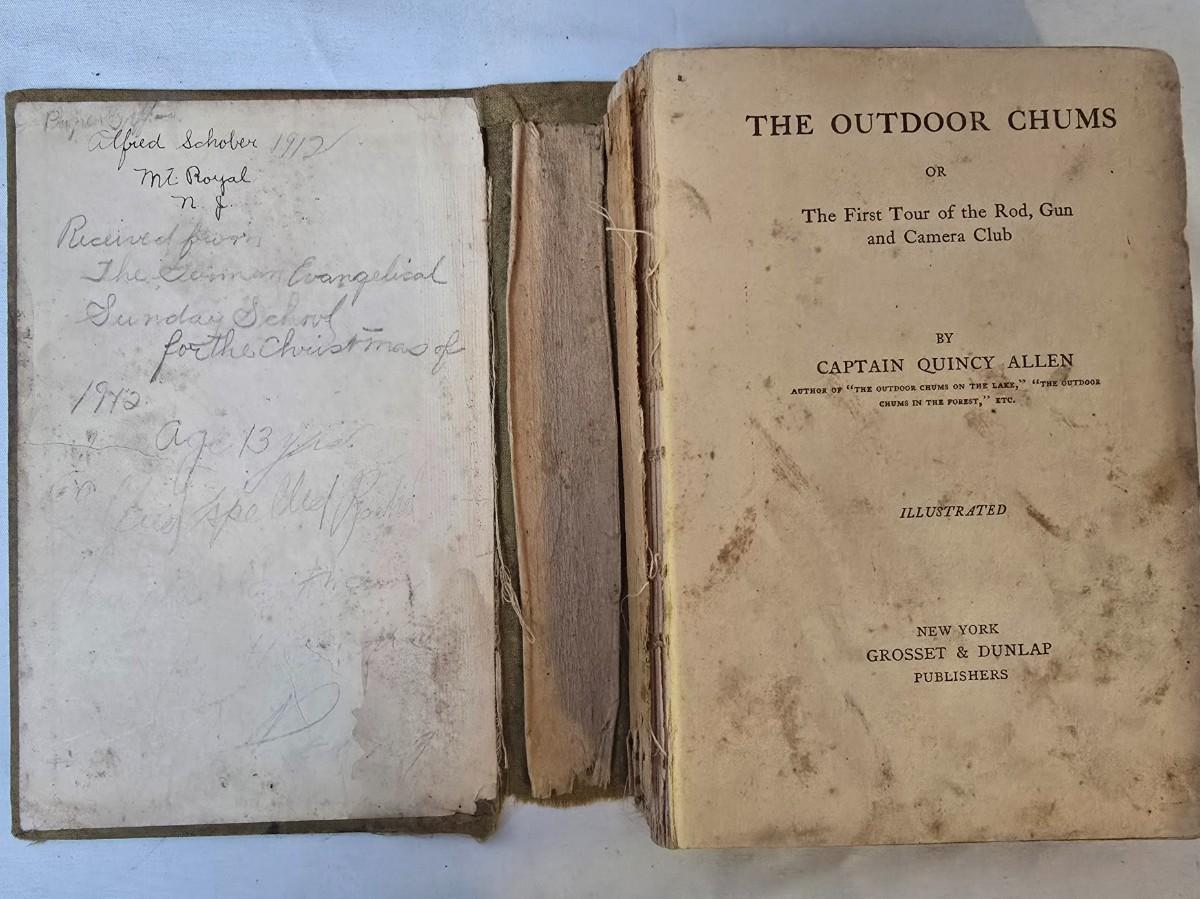 Alfred Schober 1912
Mt. Royal
N. J.
Received from
The German Evangelical
Sunday School
for the Christmas of
1912
Age 13 yrs.
THE OUTDOOR CHUMS
OR
The First Tour of the Rod, Gun
and Camera Club
BY
CAPTAIN QUINCY ALLEN
AUTHOR OF "THE OUTDOOR CHUMS ON THE LAKE," "THE OUTDOOR
CHUMS IN THE FOREST," ETC.
ILLUSTRATED
NEW YORK
GROSSET & DUNLAP
PUBLISHERS